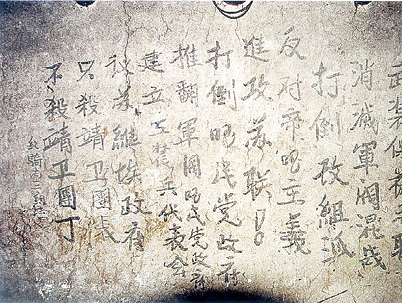 武装保護苏联
消滅軍閥混战
打倒改組派
反对帝国主義
進攻苏联的
打倒国民党政府
推翻軍閥国民党政府
建立工農兵代表会
苏維埃政府
只殺靖卫團長
不殺靖卫團丁